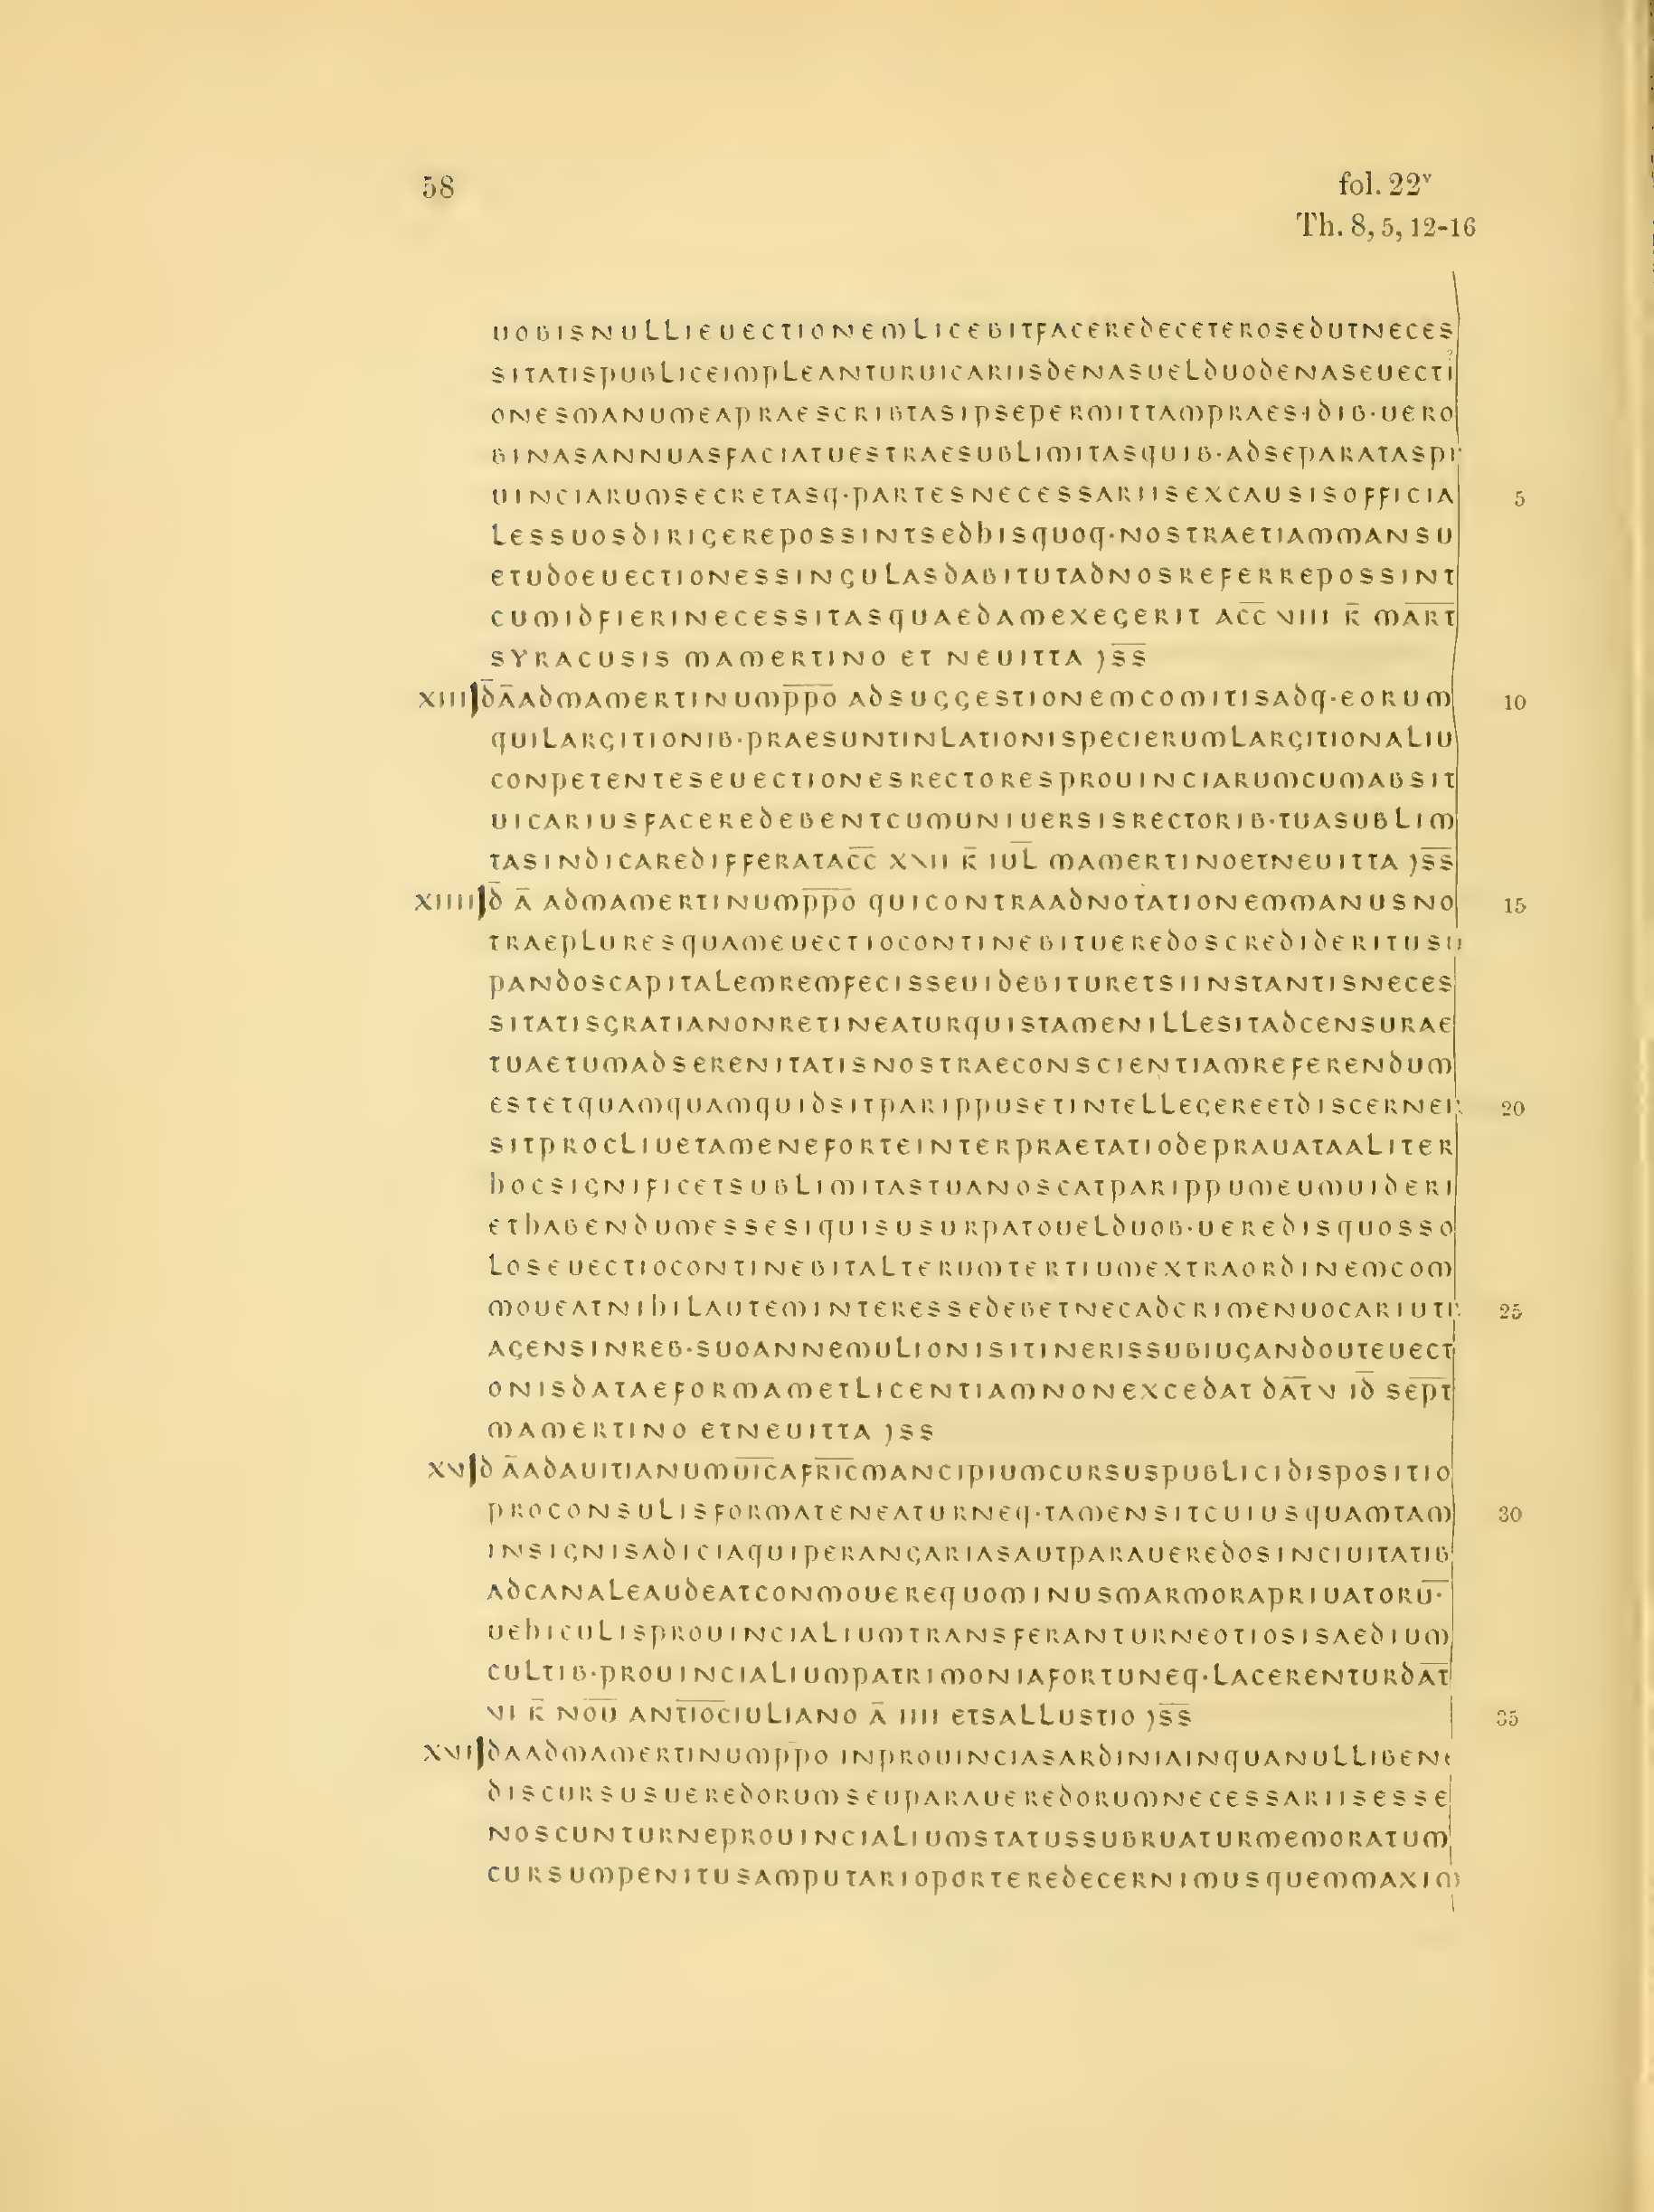 58
fol. 22v
Th. 8, 5, 12-16
UOBISNULLIEUECTIONEMLICEBITFACEREDECETEROSEDUTNECES
SITATISPUBLICEIMPLEANTURUICARIISDENASUELDUODENASEUECTI
ONESMANUMEAPRAESCRIBTASIPSEPERMITTAMPRAESIDIB·UERO
BINASANNUASFACIATUESTRAESUBLIMITASQUIB·ADSEPARATASPR
UINCIARUMSECRETASQ·PARTESNECESSARIISEXCAUSISOFFICIA
5
LESSUOSDIRIGEREPOSSINTSEDHISQUOQ·NOSTRAETIAMMANSU
ETUDOEUECTIONESSINGULASDABITUTADNOSREFERREPOSSINT
CUMIDFIERINECESSITASQUAEDAMEXEGERIT AC̅C̅ VIIII K̅ MA̅R̅T̅
SYRACUSIS MAMERTINO ET NEUITTA )S̅S̅
XIII D̅A̅ADMAMERTINUMP̅P̅O̅ ADSUGGESTIONEMCOMITISADQ·EORUM
10
QUILARGITIONIB·PRAESUNTINLATIONISPECIERUMLARGITIONALIU
CONPETENTESEUECTIONESRECTORESPROUINCIARUMCUMABSIT
UICARIUSFACEREDEBENTCUMUNIUERSISRECTORIB·TUASUBLIM
TASINDICAREDIFFERATAC̅C̅ XVII K̅ IUL̅ MAMERTINOETNEUITTA )S̅S̅
XIIII D̅ A̅ ADMAMERTINUMP̅P̅O̅ QUICONTRAADNOTATIONEMMANUSNO
15
TRAEPLURESQUAMEUECTIOCONTINEBITUEREDOSCREDIDERITUSU
PANDOSCAPITALEMREMFECISSEUIDEBITURETSIINSTANTISNECES
SITATISGRATIANONRETINEATURQUISTAMENILLESITADCENSURAE
TUAETUMADSERENITATISNOSTRAECONSCIENTIAMREFERENDUM
ESTETQUAMQUAMQUIDSITPARIPPUSETINTELLEGEREETDISCERNER
20
SITPROCLIUETAMENEFORTEINTERPRAETATIODEPRAUATAALITER
HOCSIGNIFICETSUBLIMITASTUANOSCATPARIPPUMEUMUIDERI
ETHABENDUMESSESIQUISUSURPATOUELDUOB·UEREDISQUOSSO
LOSEUECTIOCONTINEBITALTERUMTERTIUMEXTRAORDINEMCOM
MOUEATNIHILAUTEMINTERESSEDEBETNECADCRIMENUOCARIUTR
25
AGENSINREB·SUOANNEMULIONISITINERISSUBIUGANDOUTEUECT
ONISDATAEFORMAMETLICENTIAMNONEXCEDAT DA̅T̅V ID̅ SEP̅T̅
MAMERTINO ETNEUITTA )SS
XV D A̅ADAUITIANUMU̅I̅C̅AFR̅I̅C̅MANCIPIUMCURSUSPUBLICIDISPOSITIO
PROCONSULISFORMATENEATURNEQ·TAMENSITCUIUSQUAMTAM
30
INSIGNISADICIAQUIPERANGARIASAUTPARAUEREDOSINCIUITATIB
ADCANALEAUDEATCONMOUEREQUOMINUSMARMORAPRIUATORU̅·
UEHICULISPROUINCIALIUMTRANSFERANTURNEOTIOSISAEDIUM
CULTIB·PROUINCIALIUMPATRIMONIAFORTUNEQ·LACERENTURDA̅T̅
VI K̅ NO̅U̅ ANT̅I̅O̅C̅IULIANO A̅ IIII ETSALLUSTIO )S̅S̅
35
XVI DAADMAMERTINUMPP̅O INPROUINCIASARDINIAINQUANULLIBENE
DISCURSUSUEREDORUMSEUPARAUEREDORUMNECESSARIISESSE
NOSCUNTURNEPROUINCIALIUMSTATUSSUBRUATURMEMORATUM
CURSUMPENITUSAMPUTARIOPORTEREDECERNIMUSQUEMMAXIM